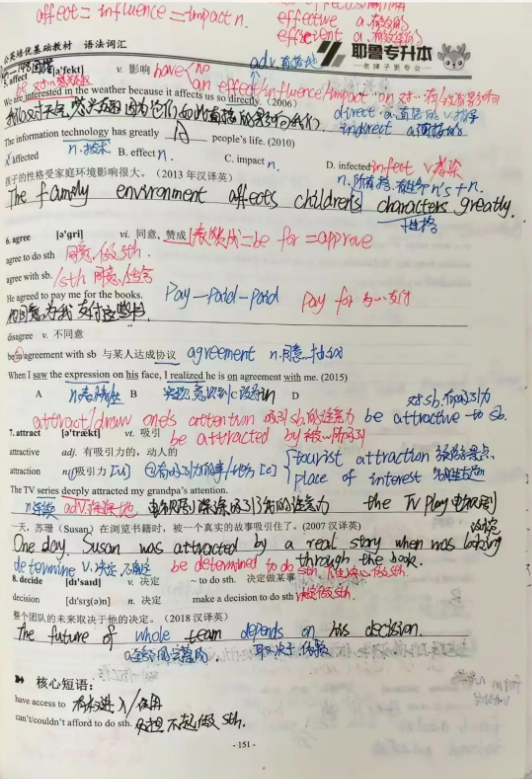 affect = influence = impact n.
effective a. 有效的
efficient a. 有效率的
英语培优基础教材 语法词汇
耶鲁专升本
老牌子更专业
5. affect [ə'fekt] v. 影响 have no
an effect/influence/impact on 对…有/没有影响
We are interested in the weather because it affects us so directly. (2006)
direct a. 直接的 v. 指导
indirect a. 间接的
The information technology has greatly people's life. (2010)
A. affected B. effect n. C. impact n. D. infected infect v. 感染
n. 技术
孩子的性格受家庭环境影响很大。(2013 年汉译英)
The family environment affects children's characters greatly.
性格
6. agree [ə'gri] vi. 同意,赞成 = be for = approve
agree to do sth 同意做 sth.
agree with sb. /sth 同意,适合
He agreed to pay me for the books. Pay—Paid—Paid Pay for 为…支付
他同意为我支付这些书.
disagree v. 不同意
be in agreement with sb 与某人达成协议 agreement n. 同意,协议
When I saw the expression on his face, I realized he is on agreement with me. (2015)
A B C D
attract/draw one's attention 吸引 sb. 的注意力 be attractive to sb.
7. attract [ə'trækt] vt. 吸引 be attracted by 被…所吸引
attractive adj. 有吸引力的,动人的
attraction n. ①吸引力 [U] ②有吸引力的事/地方 [C] tourist attraction 旅游景点
place of interest
The TV series deeply attracted my grandpa's attention.
the TV play 电视剧
一天,苏珊(Susan)在浏览书籍时,被一个真实的故事吸引住了。(2007 汉译英)
One day, Susan was attracted by a real story when was looking
through the book.
determine v. 决定 be determined to do sth. 下定决心做 sth.
8. decide [dɪ'saɪd] v. 决定 ~ to do sth. 决定做某事
decision [dɪ'sɪʒ(ə)n] n. 决定 make a decision to do sth 决定做 sth.
整个团队的未来取决于他的决定。(2018 汉译英)
The future of whole team depends on his decision.
取决于 依赖
核心短语:
have access to 有权进入/使用
can't/couldn't afford to do sth. 承担不起做 sth.
- 151 -